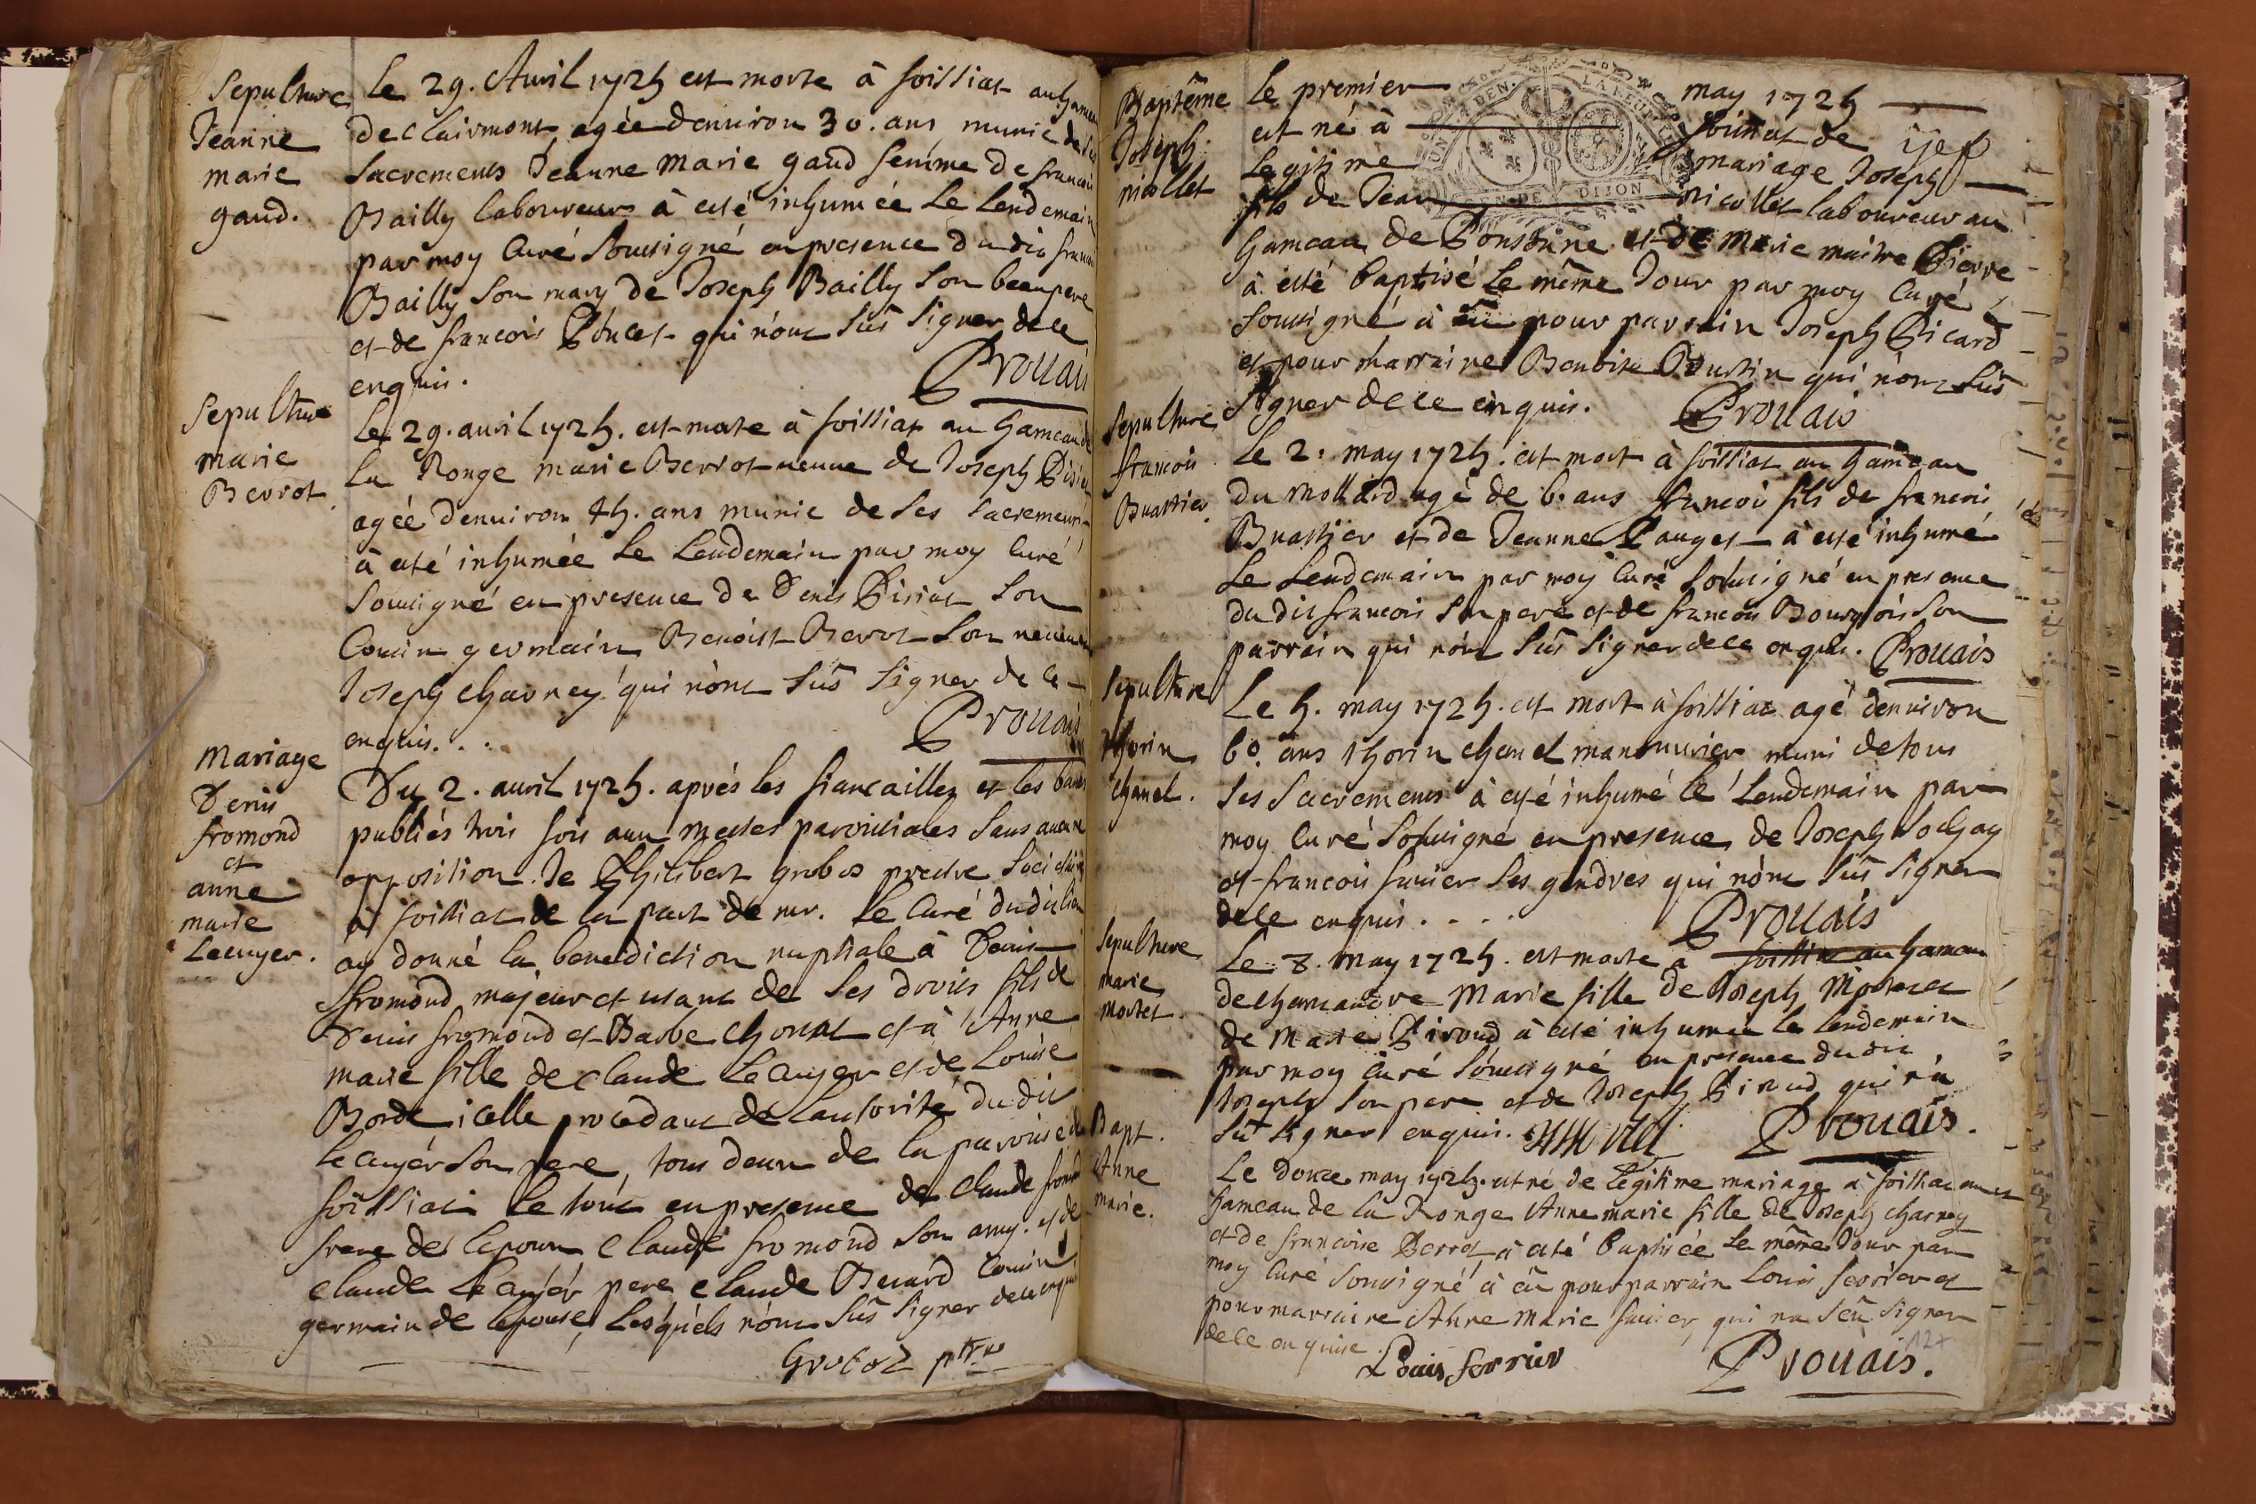 Sepulture
Jeanne
marie
gaud.
Le 29. Avril 1725 est morte à foissiat au hameau
de Clairmont agée denuiron 30. ans munie de ses
Sacrements Jeanne Marie gaud femme de francois
Bailly laboureur à esté inhumée Le Lendemain
par moy Curé Soussigné en presence du dit francois
Bailly Son mary de Joseph Bailly Son beaupere
et de francois Poncet qui n'ont sûs signer de ce
enquis.
Prouais
Sepulture
marie
Berrot
Le 29. auril 1725. est morte à foissiat au hameau de
La Ronge marie Berrot ueuue de Joseph
agée denuiron 45. ans munie de ses sacrements
à esté inhumée Le Lendemain par moy Curé
Soussigné en presence de Denis Pisiat Son
Cousin germain Benoist Berrot Son neueu
Joseph charney qui n'ont sûs signer de ce
enquis...
Prouais
Mariage
Denis
fromond
et
anne
marie
Lecuyer.
Du 2. auril 1725. aprés les fiancailles et les bans
publiés trois fois aux messes paroissiales sans aucune
opposition. Je Philibert grobos prestre
à foissiat de la part de mr. Le Curé dudit lieu
ay donné la benediction nuptiale à Denis
fromond majeur et usant de ses droits fils de
Denis fromond et Barbe Chonat et à Anne
marie fille de claude Lecuyer et de Louise
Borde icelle procedant de Lautorité du dit
Lecuyer Son pere, tous deux de la paroisse de
foissiat Le tout en presence de Claude fromond
frere de lepoux Claude fromond Son amy. et de
claude Lecuyer pere claude Beuard Cousin
germain de lepouse, Lesquels n'ont sûs signer de ce enquis
Groboz ptre
Baptême
Joseph
nicollet
Le premier may 1725
est né à foissiat de
Legitime mariage Joseph
fils de Jean nicollet laboureur au
hameau de Ponsonne et de Marie maitre Pierre
à esté baptisé Le même Jour par moy Curé
Soussigné à eû pour parrain Joseph Picard
et pour marraine Benoite Poustin qui n'ont sûs
Signer de ce enquis.
Prouais
Sepulture
francois
Buattier
Le 2. may 1725. est mort à foissiat au hameau
du Mollard agé de 6. ans francois fils de francois
Buattier et de Jeanne Pauget à esté inhumé
Le Lendemain par moy Curé Soussigné en presence
du dit francois Son pere et de francois Bourgois Son
parrain qui n'ont sûs signer de ce enquis.
Prouais
Sepulture
thorin
chanel.
Le 5. may 1725. est mort à foissiat agé denuiron
60. ans thorin chanel manouurier muni de tous
Ses Sacrements à esté inhumé le Lendemain par
moy Curé Soussigné en presence de Joseph Sochay
et francois fauier Ses gendres qui n'ont sûs signer
de ce enquis....
Prouais
Sepulture
marie
mortet.
Le 8. May 1725. est morte à foissiat au hameau
de Chamandre Marie fille de Joseph Mortet et
de Marie Piroud à esté inhumée le lendemain
par moy Curé Soussigné en presence du dit
Joseph Son pere et de Joseph Piroud qui n'a
sû signer enquis.
Prouais.
Bapt.
Anne
marie.
Le douze may 1725. est né de Legitime mariage à foissiat au
hameau de la Ronge Anne marie fille de Joseph charney
et de francoise Berrot, à esté baptisée Le même Jour par
moy Curé Soussigné à eû pour parrain Louis ferrier et
pour marraine Anne Marie fauier, qui na sçû signer
de ce enquise.
Louis ferrier
Prouais.